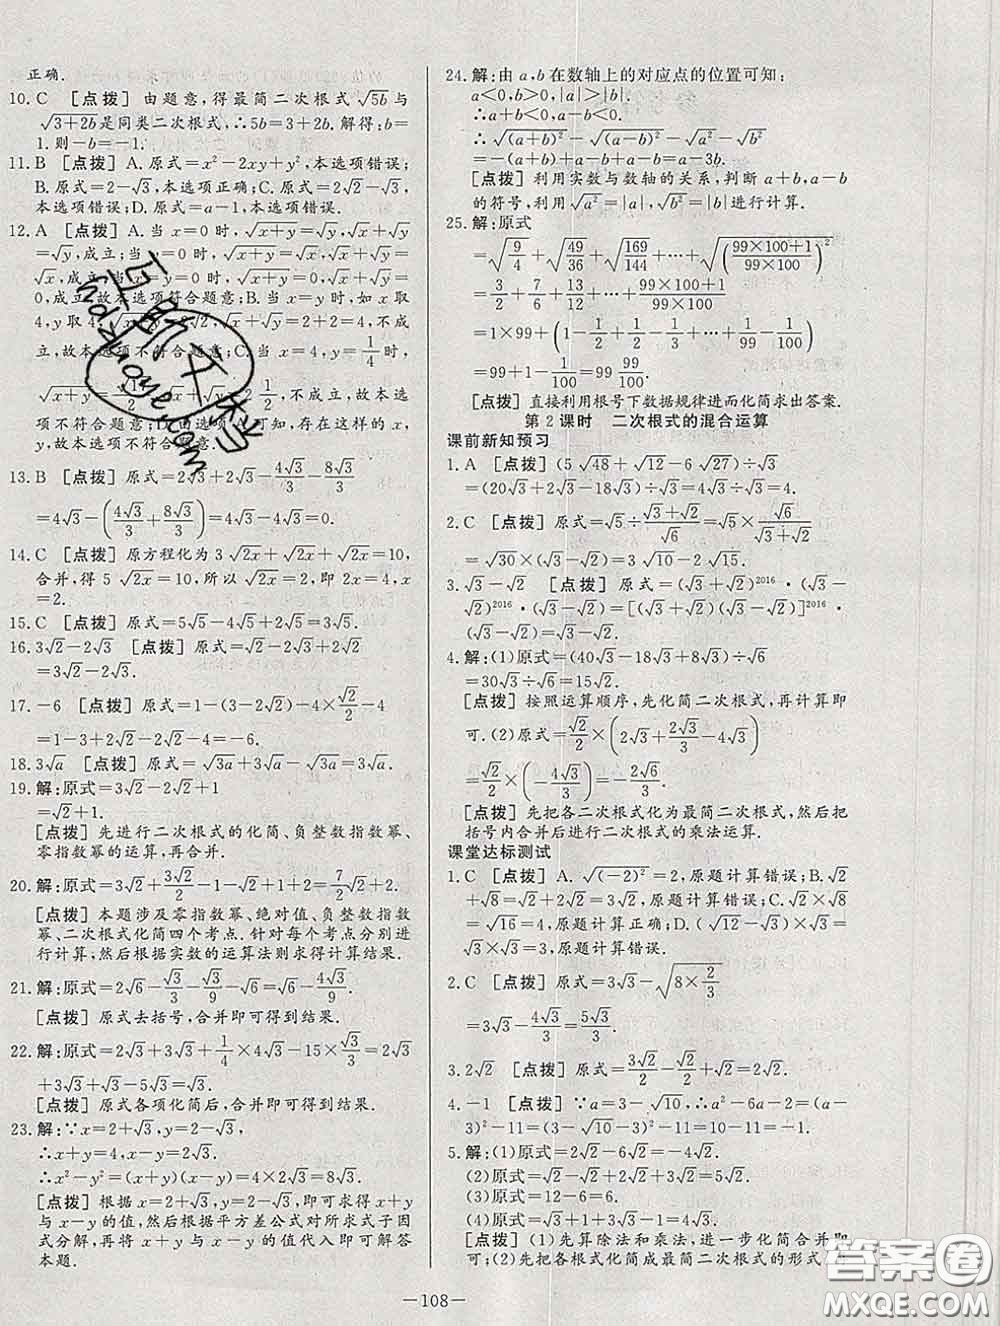 正确.
10. C [点拨] 由题意,得最简二次根式√5b与
√3+2b是同类二次根式,∴5b=3+2b.解得:b=
1.则-b=-1.
11. B [点拨] A.原式=x²-2xy+y²,本选项错误;
B.原式=2-√3,本选项正确;C.原式=2√2-√3,
本选项错误;D.原式=a-1,本选项错误.
12. A [点拨] A.当x=0时,√x+y=√y,√x+√y
=√y,成立;当y=0时,√x+y=√x,√x+√y=
√x,成立;当x=y=0时,√x+y=0,√x+√y=
0,成立,故本选项符合题意;B.当x=y时,如x取
4,y取4,√x+y=2√2,√x+√y=2+2=4,不成
立,故本选项不符合题意;C.当x=4,y=1/4时,
√x+y=√17/2,√x+√y=2 1/2,不成立,故本选
项不符合题意;D.由选项A可知,存在这样的x,
y,故本选项不符合题意.
13. B [点拨] 原式=2√3+2√3-4√3/3-8√3/3
=4√3-(4√3/3+8√3/3)=4√3-4√3=0.
14. C [点拨] 原方程化为3√2x+√2x+√2x=10,
合并,得5√2x=10,所以√2x=2,即2x=4,x
=2.
15. C [点拨] 原式=5√5-4√5+2√5=3√5.
16. 3√2-2√3 [点拨] 原式=√2-2√3+2√2
=3√2-2√3.
17. -6 [点拨] 原式=1-(3-2√2)-4×√2/2-4
=1-3+2√2-2√2-4=-6.
18. 3√a [点拨] 原式=√3a+3√a-√3a=3√a.
19. 解:原式=3√2-2√2+1
=√2+1.
[点拨] 先进行二次根式的化简、负整数指数幂、
零指数幂的运算,再合并.
20. 解:原式=3√2+3√2/2-1-√2+1+2=7/2√2+2.
[点拨] 本题涉及零指数幂、绝对值、负整数指数
幂、二次根式化简四个考点.针对每个考点分别进
行计算,然后根据实数的运算法则求得计算结果.
21. 解:原式=2√6-√3/3-√3/9-√6=√6-4√3/9.
[点拨] 原式去括号,合并即可得到结果.
22. 解:原式=2√3+3√3+1/4×4√3-15×√3/3=2√3
+3√3+√3-5√3=√3.
[点拨] 原式各项化简后,合并即可得到结果.
23. 解:∵x=2+√3,y=2-√3,
∴x+y=4,x-y=2√3.
∴x²-y²=(x+y)(x-y)=4×2√3=8√3.
[点拨] 根据x=2+√3,y=2-√3,即可求得x+y
与x-y的值,然后根据平方差公式对所求式子因
式分解,再将x+y与x-y的值代入即可解答
本题.
24. 解:由a,b在数轴上的对应点的位置可知:
a<0,b>0,|a|>|b|.
∴a+b<0,a-b<0.
∴√(a+b)²-√(a-b)²-√a²-√b²
=-(a+b)+(a-b)+a-b=a-3b.
[点拨] 利用实数与数轴的关系,判断a+b,a-b
的符号,利用√a²=|a|,√b²=|b|进行计算.
25. 解:原式
=√9/4+√49/36+√169/144+…+√((99×100+1)/(99×100))²
=3/2+7/6+13/12+…+(99×100+1)/(99×100)
=1×99+(1-1/2+1/2-1/3+…+1/99-1/100)
=99+1-1/100=99 99/100.
[点拨] 直接利用根号下数据规律进而化简求出答案.
第2课时 二次根式的混合运算
课前新知预习
1. A [点拨] (5√48+√12-6√27)÷√3
=(20√3+2√3-18√3)÷√3=4√3÷√3=4.
2. C [点拨] 原式=√5÷(√3+√2)/√6=√5×√6/(√3+√2)
=√30×(√3-√2)=3√10-2√15.
3. √3-√2 [点拨] 原式=(√3+√2)²⁰¹⁶×(√3-
√2)²⁰¹⁶×(√3-√2)=[(√3+√2)(√3-√2)]²⁰¹⁶·
(√3-√2)=√3-√2.
4. 解:(1)原式=(40√3-18√3+8√3)÷√6
=30√3÷√6=15√2.
[点拨] 按照运算顺序,先化简二次根式,再计算即
可.(2)原式=√2/2×(2√3/3+2√3/3-4√3·2/3)
=√2/2×(-4√3/3)=-2√6/3.
[点拨] 先把各二次根式化为最简二次根式,然后把
括号内合并后进行二次根式的乘法运算.
课堂达标测试
1. C [点拨] A.√(-2)²=2,原题计算错误;B.√2
+√8=√2+2√2=3√2,原题计算错误;C.√2×√8
=√16=4,原题计算正确;D.(√15-√12)÷√3
=√3÷√3=3,原题计算错误.
2. C [点拨] 原式=3√3-√8×2/3
=3√3-4√3/3=5√3/3.
3. 2√2 [点拨] 原式=3√2/2-√2/2+√2=2√2.
4. -1 [点拨] ∵a=3-√10,∴a²-6a-2=(a-
3)²-11=(3-√10-3)²-11=10-11=-1.
5. 解:(1)原式=2√2-6√2=-4√2.
(2)原式=√5-√5+√2=√2.
(3)原式=12-6=6.
(4)原式=√3+2-√3=2.
[点拨] (1)先算除法和乘法,进一步化简合并即
可;(2)先把各根式化简成最简二次根式的形式,
—108—
答案圈
MXQE.COM